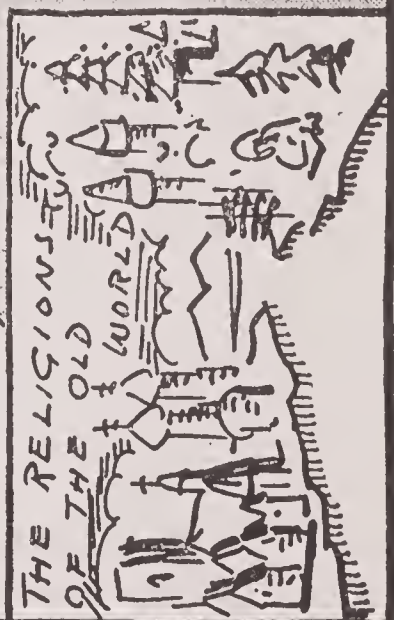 THE RELIGIONS
OF THE OLD
WORLD